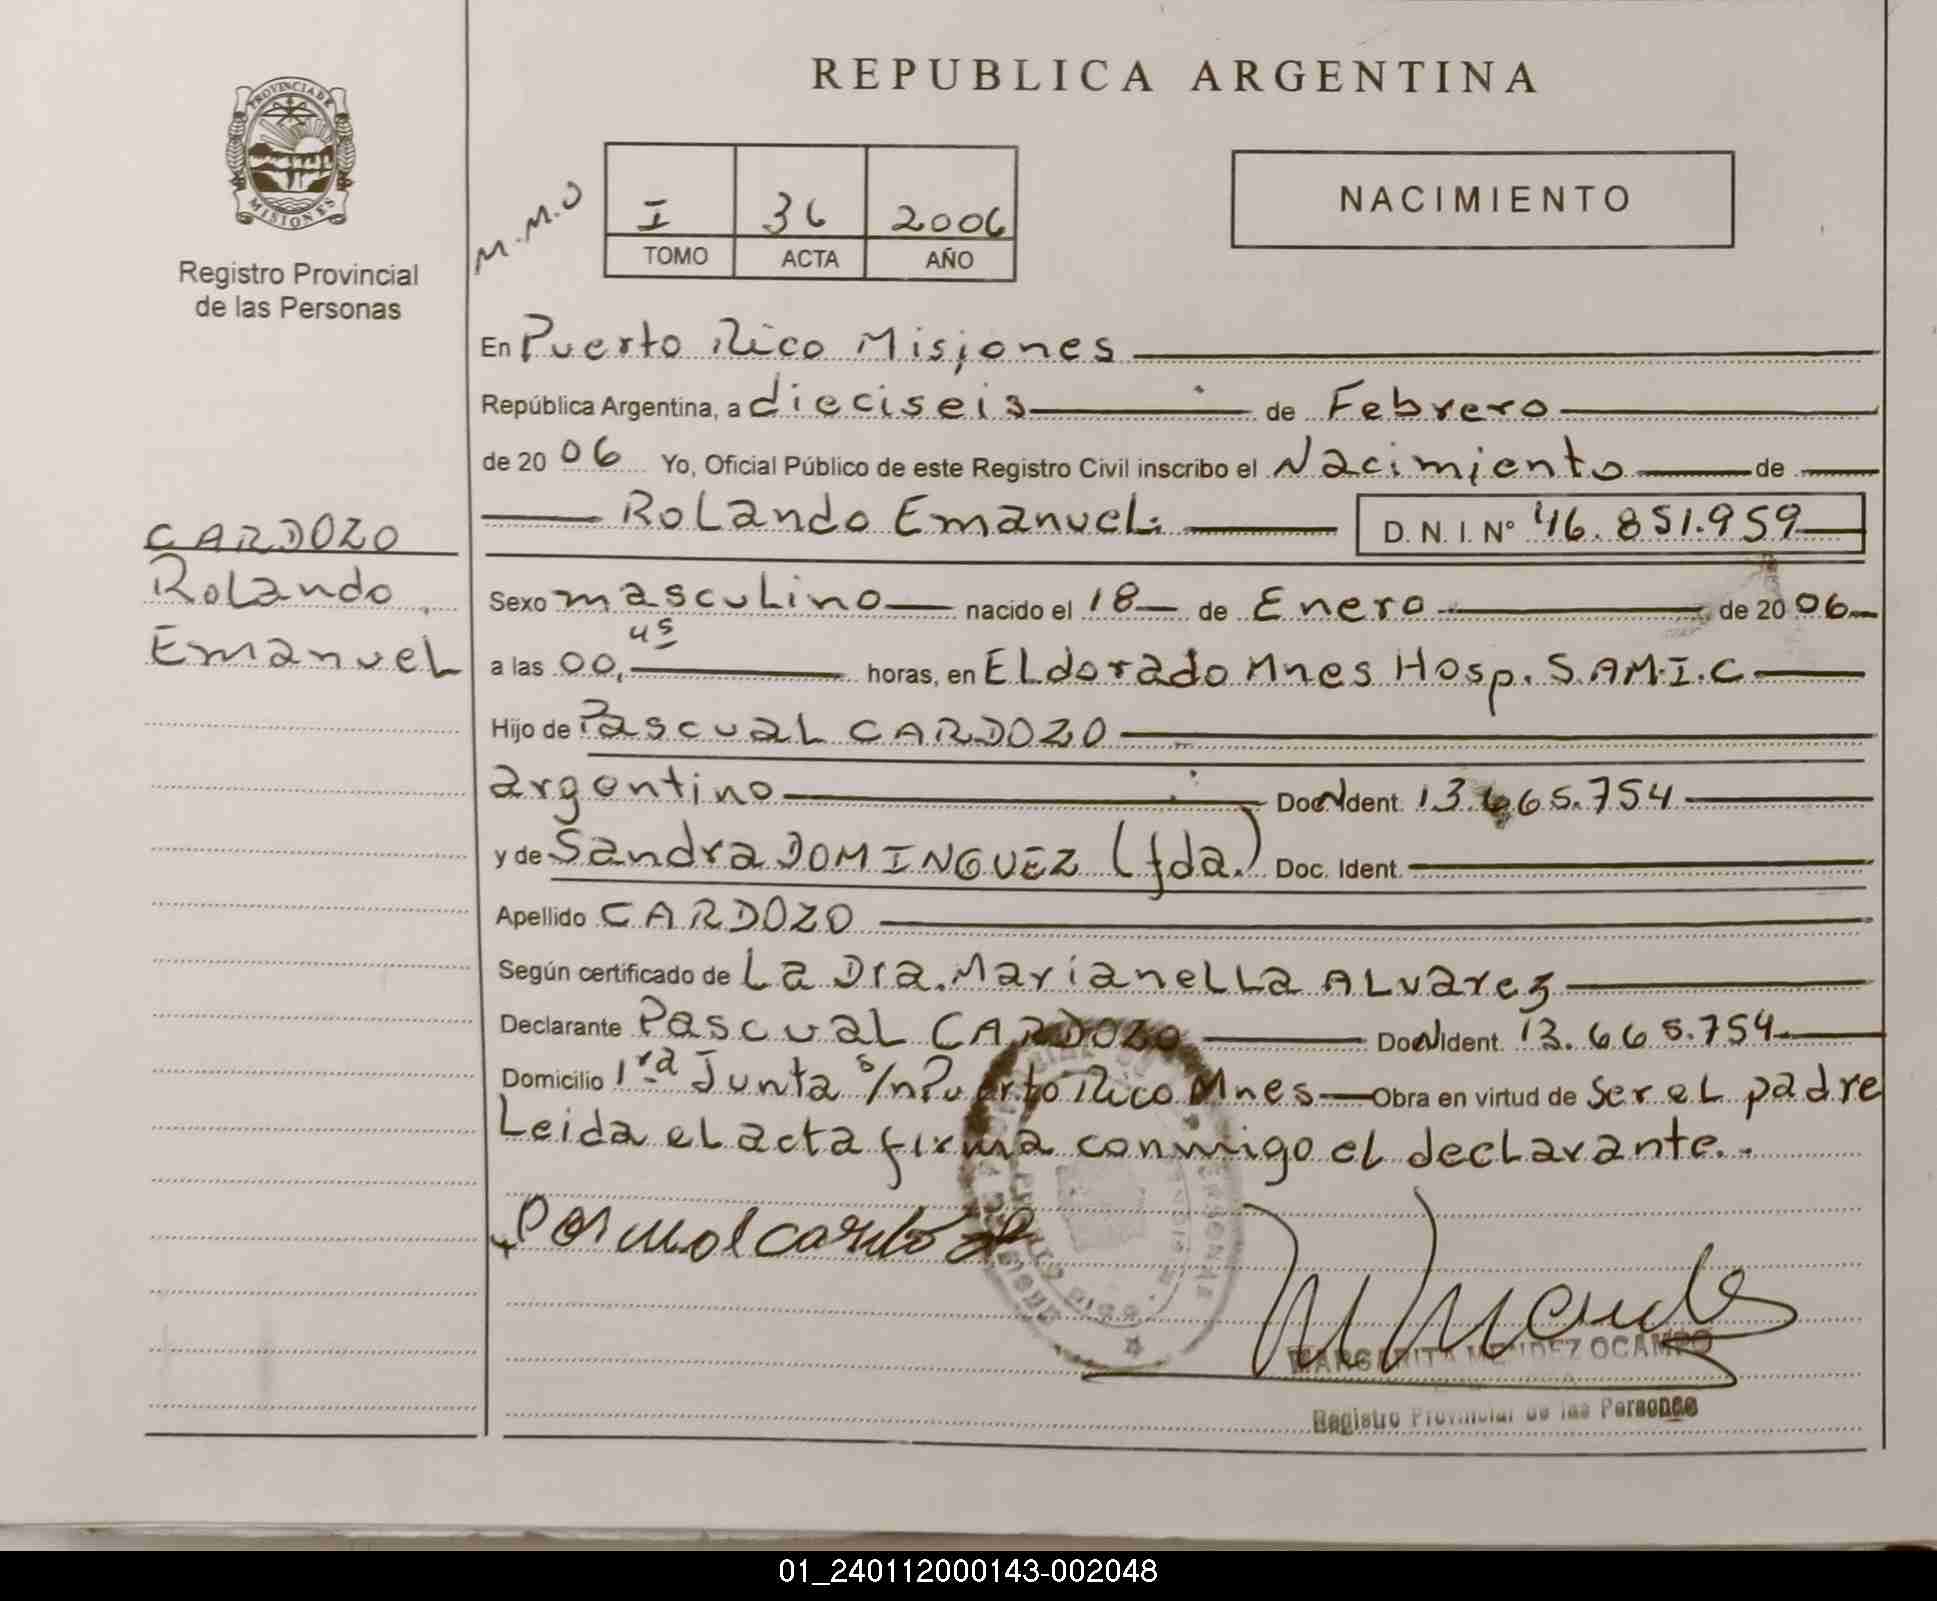 REPUBLICA ARGENTINA
PROVINCIA DE
MISIONES
Registro Provincial
de las Personas
M.M.O
I 36 2006
TOMO ACTA AÑO
NACIMIENTO
CARDOZO
Rolando
Emanuel
En Puerto Rico Misiones
República Argentina, a dieciseis de Febrero
de 2006 Yo, Oficial Público de este Registro Civil inscribo el Nacimiento de
Rolando Emanuel. D. N. I. Nº 46.851.959
Sexo masculino nacido el 18 de Enero de 2006
a las 00,45 horas, en Eldorado Mnes Hosp. S.AM.I.C
Hijo de Pascual CARDOZO
argentino Doc N Ident. 13.665.754
y de Sandra DOMINGUEZ (fda.) Doc. Ident.
Apellido CARDOZO
Según certificado de La Dra. Marianella Alvarez
Declarante Pascual CARDOZO Doc N Ident. 13.665.754
Domicilio 1ra Junta s/n Puerto Rico Mnes Obra en virtud de Ser el padre
Leida el acta firma conmigo el declarante.-
MARGARITA MENDEZ OCAMPO
Registro Provincial de las Personas
01_240112000143-002048